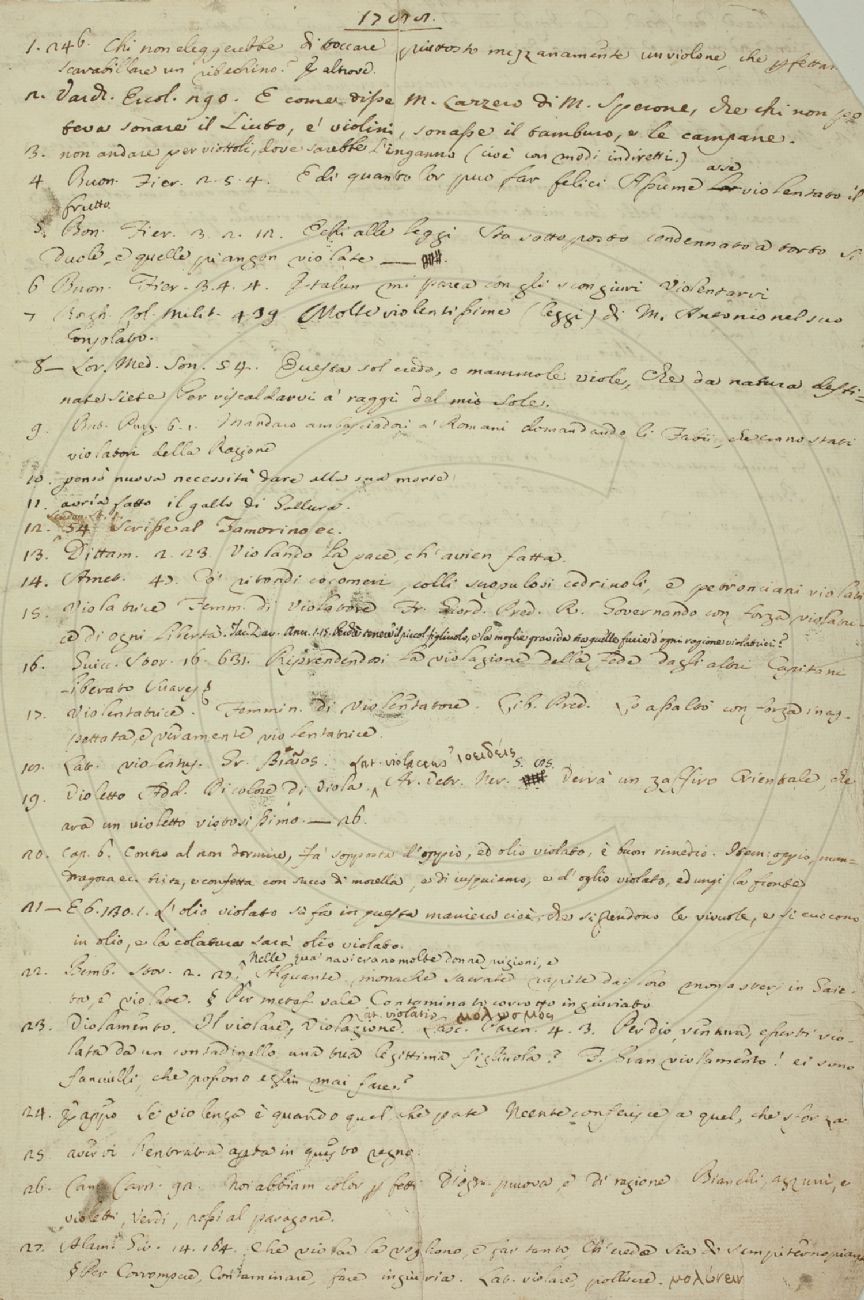 1. 246. Chi non eleggerebbe di toccare piuttosto mezzanamente un violone, che perfettam
scarabillare un ribechino? E altrove
2. Varch. Ercol. 290. E come disse M. Carlo di M. Sperone, che chi non po
teva sonare il Liuto, e' violini, sonasse il tamburo, e le campane.
3. non andare per viottoli, dove sarebbe l'inganno (cioè con modi indiretti.)
4. Buon. Fier. 2. 5. 4. E di quanto lor può far felici Assume violentato il
frutto.
5. Bon. Fier. 3. 2. 12. Ecci alle leggi Sta sottoposto condennato a torto si
duole, e quelle piangon violate —
6 Buon. Fier. 3. 4. 4. Italun mi parea con gli scongiuri Violentarvi
7 Borgh. Col. Milit. 439 Molte violentissime (leggi) di M. Antonio nel suo
Consolato.
8— Lor. Med. Son. 54. Questa sol credo, o mammole viole, che da natura desti=
nate siete Per riscaldarvi a' raggi del mio Sole.
9. But. Purg. 6. 1. Mandaro ambasciadori a' Romani domandando li Fabii, che erano stati
violatori della Ragione
10. pensò nuova necessità dare alla sua morte
11. avria fatto il gallo di Gallura.
12. 54 Scrisse al Tamorino ec.
13. Dittam. 2. 23 Violando la pace, ch'avien fatta.
14. Amet. 47. I ritondi cocomeri, colli scopulosi cedriuoli, e petronciani violati
15. Violatrice Femm. di Violatore Fr. Giord. Pred. R. Governando con forza violatri-
ce di ogni libertà.
16. Guicc. Stor. 16. 631. Riprendendosi la violazione della Fede dagli altri Capitani
liberato
17. Violentatrice. Femmin. di Violentatore. Lib. Pred. Lo assaltò con forza inas-
pettata, e veramente violentatrice.
18. Lat. violentus. Gr. βίαιος.
19. Violetto Add. Di colore di viola. Lat. violaceus ἰοειδής Ar. Vetr. Ner. 5. 98. Verrà un zaffiro Orientale, che
arà un violetto vistosissimo. — 26.
20. cap. 6. Contro al non dormire, fa' soppossta d'oppio, ed olio violato, è buon rimedio. Item: oppio, man-
dragora ec. trita, e confetta con succo di morella, e di iusquiamo, e d'oglio violato, ed ungi la fronte
21— E 6. 130. 1. L'olio violato si fa in questa maniera cioè, che si prendono le vivuole, e si cuocono
in olio, e la colatura sarà olio violato.
22. Bemb. Stor. 2. 22. Nelle quai navi erano molte donne prigioni, e Alquante monache sacrate rapite dai loro monasteri in Gaie-
ta, e violate. § Per metaf. vale Contaminato corrotto ingiuriato
23. Violamento. Il violare, Violazione. Lat. violatio μολυσμός Lasc. Paren. 4. 3. Per dio, ventura, esserti vio-
lata da un contadinello una tua legittima figliuola? F. Gran violamento! ei sono
fanciulli, che possono eglin mai fare?
24. E appo Se violenza è quando quel che pate Neente conferisce a quel, che sforza
25. avervi l'entrata aperta in questo regno.
26. Cant. Carn. 92. Noi abbiam color perfetti D'ogni pruova, e di ragione Bianchi, azzurri, e
violetti, Verdi, rossi al paragone.
27. Alam. Gir. 14. 164. Che violar la vogliono, e far tanto, Ch'erede sia di sempiterno pianto
§ Per Corrompere, Contaminare, fare ingiuria. Lat. violare, polluere. μολύνειν